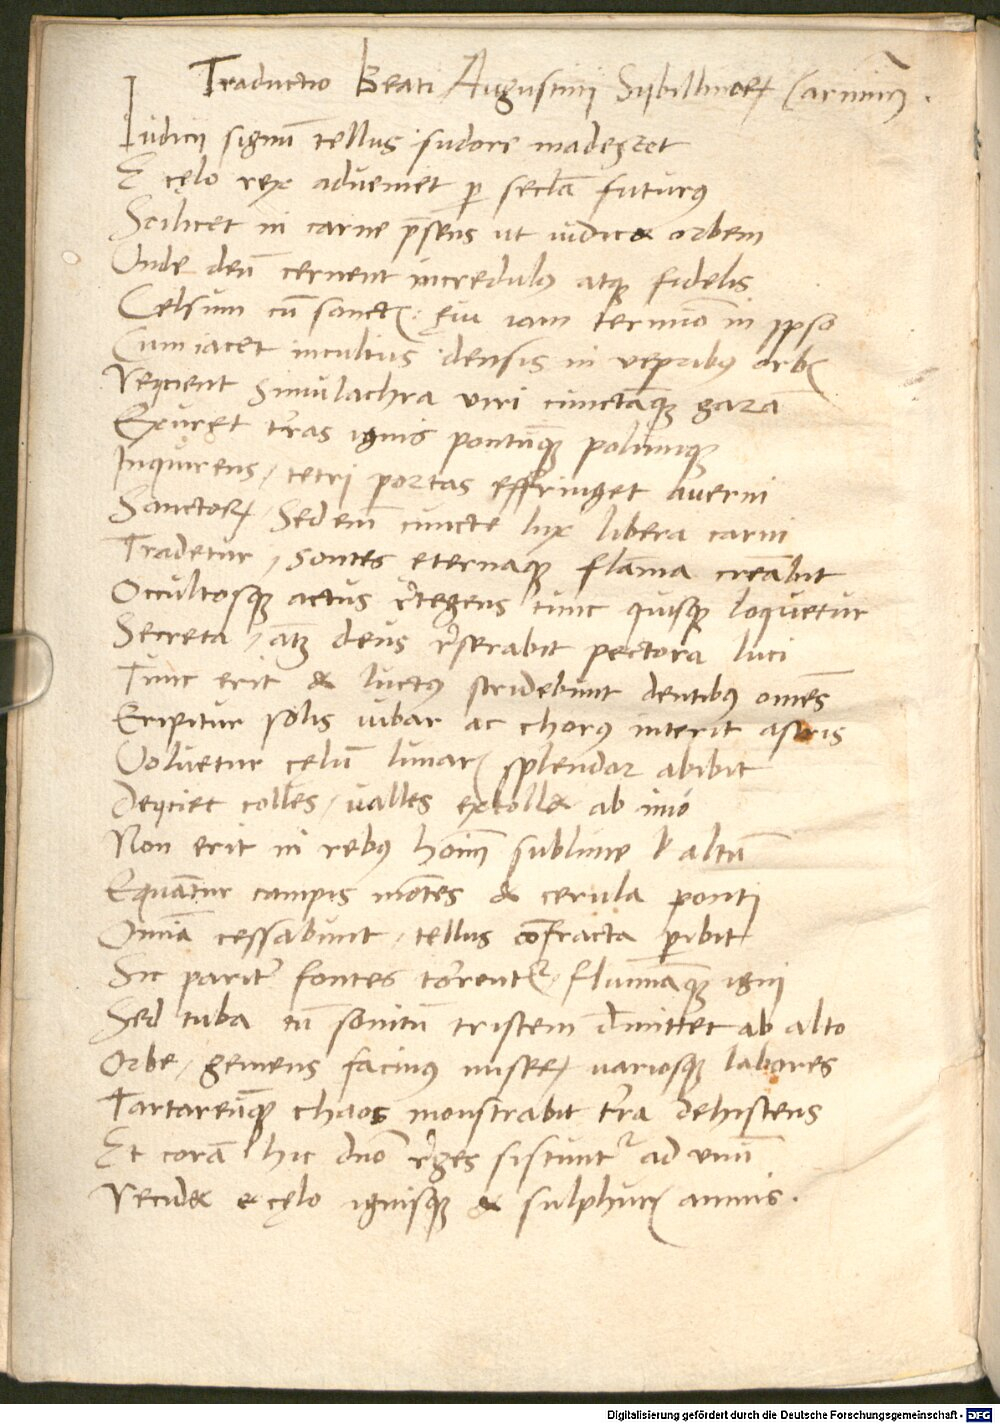 Traductio Beati Augustini Sybillinoꝝ Carminū̄.
Iudicij signū tellus sudore madescet
E cęlo rex adveniet ꝑ secla futurꝰ
Scilicet in carne p̄sens ut iudic& orbem
Unde deū cernent incredulꝰ atqꝫ fidelis
Celsum cū sanctꝭ ęui iam termīo in ipso
Cum iacet incultus densis in vepribꝰ orbꝭ
Reijcient simulachra viri cunctāqꝫ gazā
Exuret t̄ras ignis pontūqꝫ polūmqꝫ
Inquirens / tetri portas effringet Averni
Sanctoꝝ Sed enī cuncte lux libera carni
Tradetur / sontes eternaqꝫ flāma creābit
Occultosqꝫ actus r̄tegens tunc quisqꝫ loquetur
Secreta / atqꝫ deus r̄serabit pectora luci
Tunc erit & luctꝰ stridebunt dentibꝰ omēs
Eripitur solis iubar ac chorꝰ interit astris
Volvetur celū lunarꝭ splendor abibit
Deijciet colles / valles extoll& ab imo
Non erit in rebꝰ hoīm sublime ł altū
Equāntur campis mōtes & cerula ponti
Omīa cessabunt / tellus cōfracta ꝑibit
Sic parit̄ fontes torrentr̄ / flumināqꝫ igni
Sed tuba tū sonitū tristem dimittet ab alto
Orbe / gemens facinꝰ miseꝝ variosqꝫ labores
Tartareūqꝫ chaos monstrabit t̄ra dehiscens
Et corā hic dn̄o r̄ges sistuntr̄ ad vnū
Recid& e cęlo ignisqꝫ & sulphurꝭ amnis.
Digitalisierung gefördert durch die Deutsche Forschungsgemeinschaft - DFG